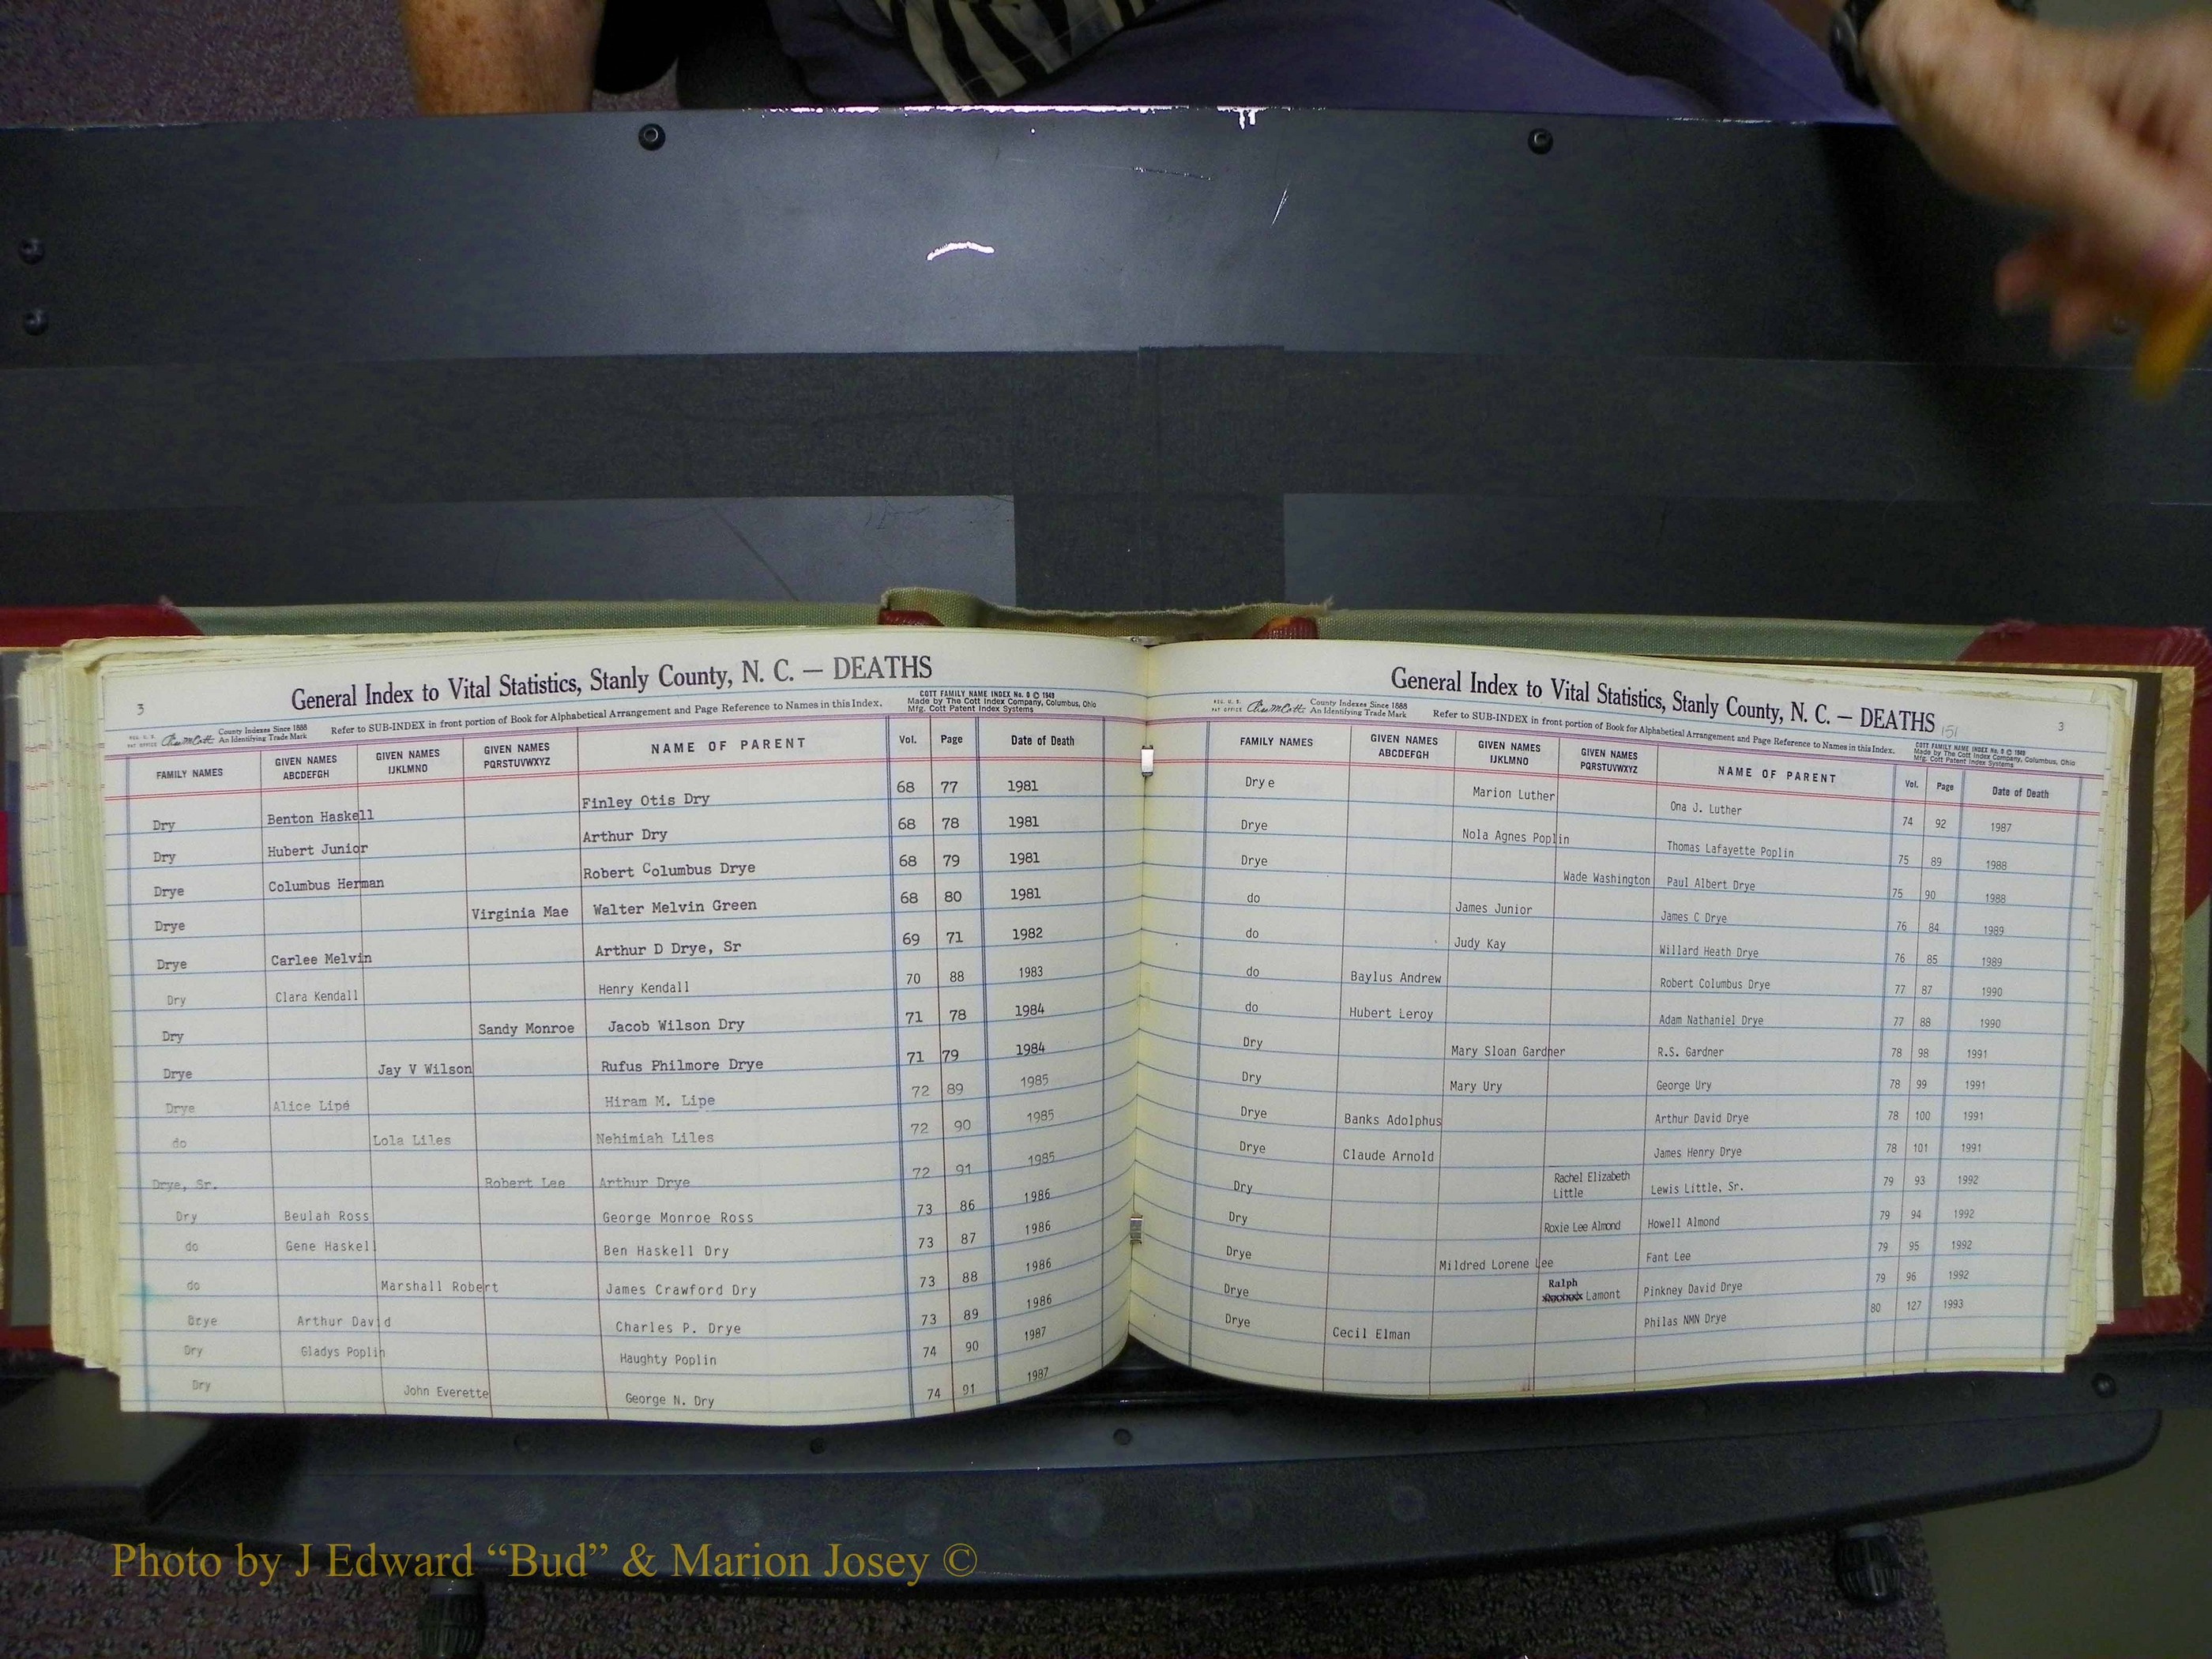 General Index to Vital Statistics, Stanly County, N. C. — DEATHS
3
REG. U. S. PAT OFFICE County Indexes Since 1888 An Identifying Trade Mark
Refer to SUB-INDEX in front portion of Book for Alphabetical Arrangement and Page Reference to Names in this Index.
COTT FAMILY NAME INDEX No. 8 © 1949
Made by The Cott Index Company, Columbus, Ohio
Mfg. Cott Patent Index Systems
FAMILY NAMES GIVEN NAMES ABCDEFGH GIVEN NAMES IJKLMNO GIVEN NAMES PQRSTUVWXYZ NAME OF PARENT Vol. Page Date of Death
Dry Benton Haskell Finley Otis Dry 68 77 1981
Dry Hubert Junior Arthur Dry 68 78 1981
Drye Columbus Herman Robert Columbus Drye 68 79 1981
Drye Virginia Mae Walter Melvin Green 68 80 1981
Drye Carlee Melvin Arthur D Drye, Sr 69 71 1982
Dry Clara Kendall Henry Kendall 70 88 1983
Dry Sandy Monroe Jacob Wilson Dry 71 78 1984
Drye Jay V Wilson Rufus Philmore Drye 71 79 1984
Drye Alice Lipe Hiram M. Lipe 72 89 1985
do Lola Liles Nehimiah Liles 72 90 1985
Drye, Sr. Robert Lee Arthur Drye 72 91 1985
Dry Beulah Ross George Monroe Ross 73 86 1986
do Gene Haskell Ben Haskell Dry 73 87 1986
do Marshall Robert James Crawford Dry 73 88 1986
Drye Arthur David Charles P. Drye 73 89 1986
Dry Gladys Poplin Haughty Poplin 74 90 1987
Dry John Everette George N. Dry 74 91 1987
General Index to Vital Statistics, Stanly County, N. C. — DEATHS
151
3
REG. U. S. PAT OFFICE County Indexes Since 1888 An Identifying Trade Mark
Refer to SUB-INDEX in front portion of Book for Alphabetical Arrangement and Page Reference to Names in this Index.
COTT FAMILY NAME INDEX No. 8 © 1949
Made by The Cott Index Company, Columbus, Ohio
Mfg. Cott Patent Index Systems
FAMILY NAMES GIVEN NAMES ABCDEFGH GIVEN NAMES IJKLMNO GIVEN NAMES PQRSTUVWXYZ NAME OF PARENT Vol. Page Date of Death
Drye Marion Luther Ona J. Luther 74 92 1987
Drye Nola Agnes Poplin Thomas Lafayette Poplin 75 89 1988
Drye Wade Washington Paul Albert Drye 75 90 1988
do James Junior James C Drye 76 84 1989
do Judy Kay Willard Heath Drye 76 85 1989
do Baylus Andrew Robert Columbus Drye 77 87 1990
do Hubert Leroy Adam Nathaniel Drye 77 88 1990
Dry Mary Sloan Gardner R.S. Gardner 78 98 1991
Dry Mary Ury George Ury 78 99 1991
Drye Banks Adolphus Arthur David Drye 78 100 1991
Drye Claude Arnold James Henry Drye 78 101 1991
Dry Rachel Elizabeth Little Lewis Little, Sr. 79 93 1992
Dry Roxie Lee Almond Howell Almond 79 94 1992
Drye Mildred Lorene Lee Fant Lee 79 95 1992
Drye Ralph Lamont Pinkney David Drye 79 96 1992
Drye Cecil Elman Philas NMN Drye 80 127 1993
Photo by J Edward “Bud” & Marion Josey ©